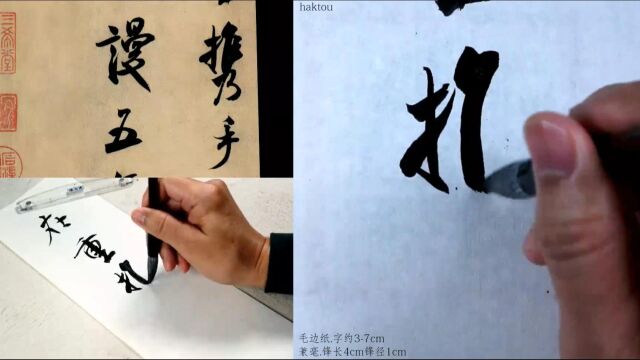 携手
謾五
三希堂
在重
haktou
毛边纸.字约3-7cm
兼毫.锋长4cm锋径1cm